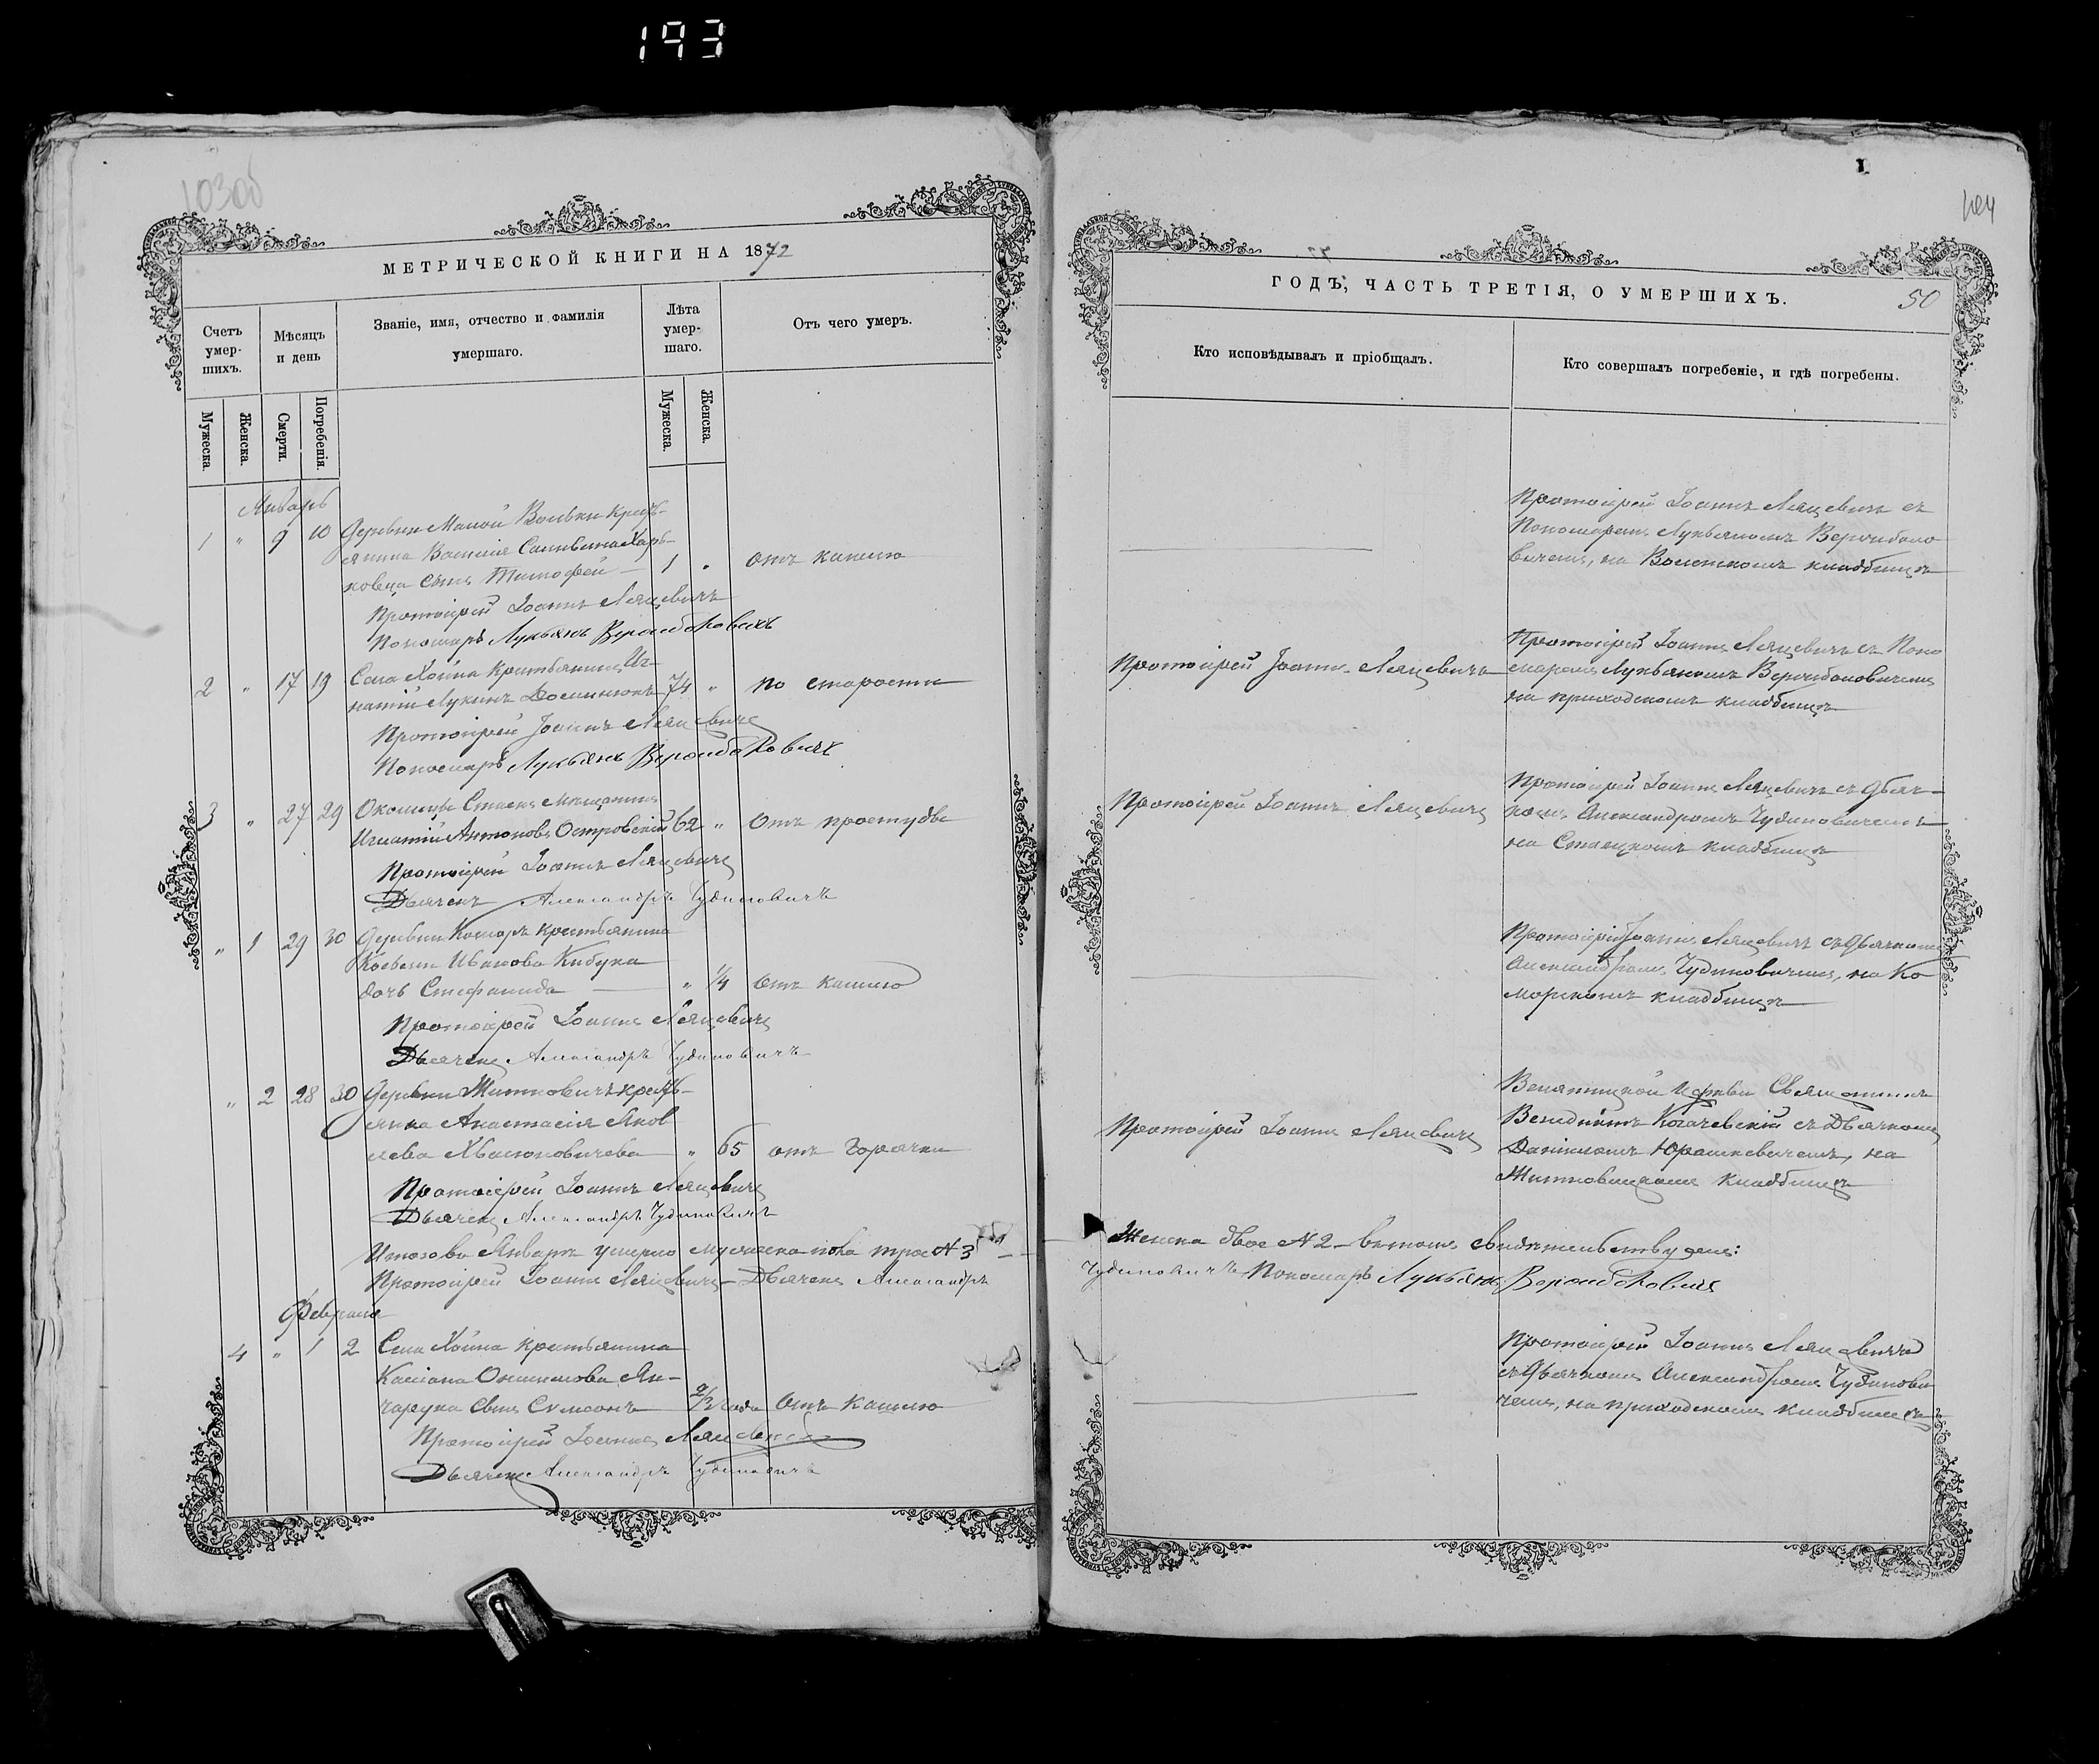 193
103об
МЕТРИЧЕСКОЙ КНИГИ НА 1872
Счетъ умер-шихъ.
Мѣсяцъ и день
Званіе, имя, отчество и фамилія умершаго.
Лѣта умер-шаго.
Отъ чего умеръ.
Мужеска.
Женска.
Смерти.
Погребенія.
Мужеска.
Женска.
Январь
1 " 9 10 Деревни Малой Вольки кресть-
янина Василія
ковца сынъ Тимофей — 1 " отъ кашлю
Протоіерей Іоаннъ Ляцевичъ
Пономарь Лукьянъ
2 " 17 19 Села Хойна крестьянинъ Иг-
натій Лукинъ 74 " по старости
Протоіерей Іоаннъ Ляцевичъ
Пономарь Лукьянъ
3 " 27 29 Околицы мѣщанинъ
Игнатій Антоновъ Островскій 62 " Отъ простуды
Протоіерей Іоаннъ Ляцевичъ
Дьячекъ Александръ Чудиновичъ
" 1 29 30 Деревни Коморъ крестьянина
Иванова
дочь Стефанида — " 1/4 отъ кашлю
Протоіерей Іоаннъ Ляцевичъ
Дьячекъ Александръ Чудиновичъ
" 2 28 30 Деревни Житновичъ кресть-
янка Анастасія Яков
лева " 65 отъ горячки
Протоіерей Іоаннъ Ляцевичъ
Дьячекъ Александръ Чудиновичъ
Итого въ Январѣ умерло мужеска пола трое N 3
Протоіерей Іоаннъ Ляцевичъ — Дьячекъ Александръ
Февраль
4 " 1 2 Села Хойна крестьянина
Касіана Онисимова Ян-
чарука сынъ Сумеонъ 2/2 года Отъ кашлю
Протоіерей Іоаннъ Ляцевичъ
Дьячекъ Александръ Чудиновичъ
104
ГОДЪ, ЧАСТЬ ТРЕТІЯ, О УМЕРШИХЪ.
50
Кто исповѣдывалъ и пріобщалъ.
Кто совершалъ погребеніе, и гдѣ погребены.
Протоіерей Іоаннъ Ляцевичъ съ
Пономаремъ Лукьяномъ
на кладбищѣ
Протоіерей Іоаннъ Ляцевичъ
Протоіерей Іоаннъ Ляцевичъ съ Поно
маремъ Лукьяномъ
на приходскомъ кладбищѣ
Протоіерей Іоаннъ Ляцевичъ
Протоіерей Іоаннъ Ляцевичъ съ Дьяч-
комъ Александромъ Чудиновичемъ
на кладбищѣ
Протоіерей Іоаннъ Ляцевичъ съ Дьячкомъ
Александромъ Чудиновичемъ, на Ко
морскомъ кладбищѣ
Протоіерей Іоаннъ Ляцевичъ
Церкви Священникъ
Венидиктъ съ Дьячкомъ
Даніиломъ Юрашкевичемъ, на
Житновицкомъ кладбищѣ
Женска двое N 2 — въ томъ свидѣтельствуемъ:
Чудиновичъ Пономарь Лукьянъ
Протоіерей Іоаннъ Ляцевичъ
съ Дьячкомъ Александромъ Чудинови
чемъ, на приходскомъ кладбищѣ